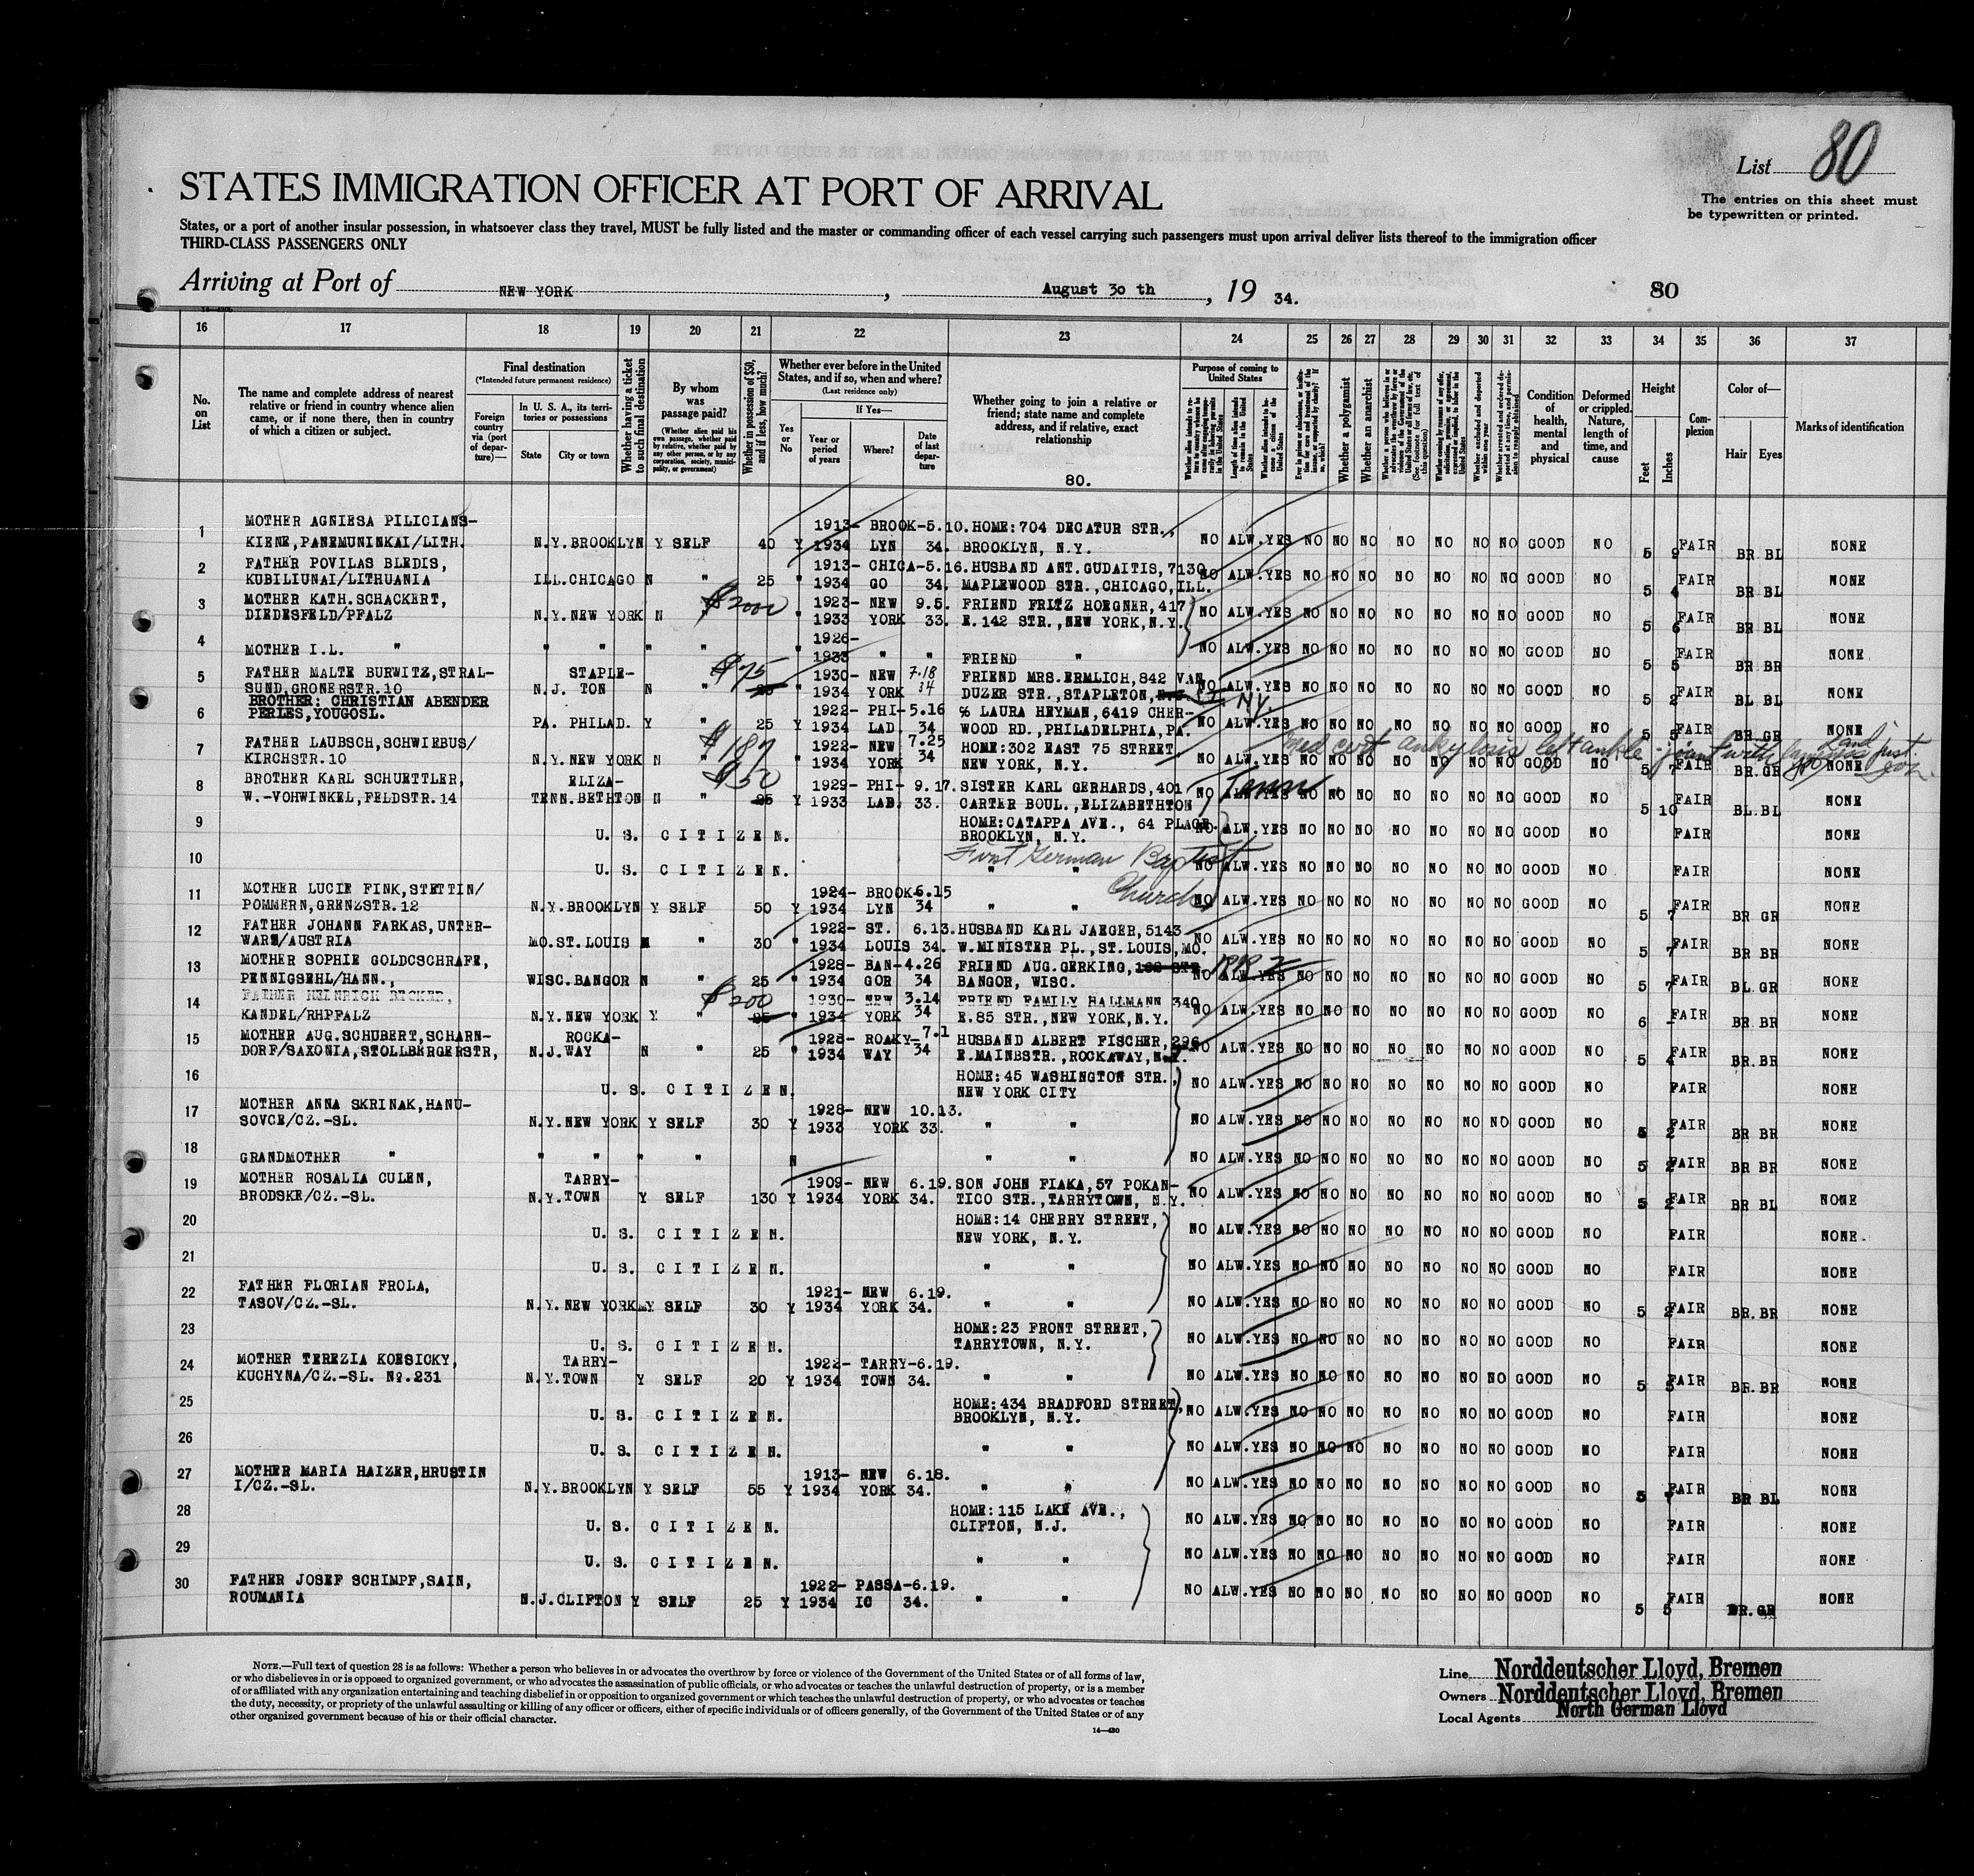 List 80
The entries on this sheet must
be typewritten or printed.
STATES IMMIGRATION OFFICER AT PORT OF ARRIVAL
States, or a port of another insular possession, in whatsoever class they travel, MUST be fully listed and the master or commanding officer of each vessel carrying such passengers must upon arrival deliver lists thereof to the immigration officer
THIRD-CLASS PASSENGERS ONLY
Arriving at Port of NEW YORK, August 30 th, 19 34. 80
16 17 18 19 20 21 22 23 24 25 26 27 28 29 30 31 32 33 34 35 36 37
No. on List
The name and complete address of nearest relative or friend in country whence alien came, or if none there, then in country of which a citizen or subject.
Final destination
(*Intended future permanent residence)
Foreign country via (port of departure)—
In U. S. A., its territories or possessions
State
City or town
Whether having a ticket to such final destination
By whom was passage paid?
(Whether alien paid his own passage, whether paid by relative, whether paid by any other person, or by any corporation, society, municipality, or government)
Whether in possession of $50, and if less, how much?
Whether ever before in the United States, and if so, when and where?
(Last residence only)
Yes or No
If Yes—
Year or period of years
Where?
Date of last departure
Whether going to join a relative or friend; state name and complete address, and if relative, exact relationship
80.
Purpose of coming to United States
Whether a polygamist
Whether an anarchist
Condition of health, mental and physical
Deformed or crippled. Nature, length of time, and cause
Height
Feet
Inches
Complexion
Color of—
Hair
Eyes
Marks of identification
1 MOTHER AGNIESA PILICIANS- 1913- BROOK-5.10. HOME:704 DECATUR STR.,
KIENE,PANEMUNINKAI/LITH. N.Y.BROOKLYN Y SELF 40 Y 1934 LYN 34. BROOKLYN, N.Y. NO ALW.YES NO NO NO NO NO NO NO GOOD NO 5 9 FAIR BR BL NONE
2 FATHER POVILAS BLEDIS, 1913- CHICA-5.16. HUSBAND ANT.GUDAITIS,7130
KUBILIUNAI/LITHUANIA ILL.CHICAGO N " 25 " 1934 GO 34. MAPLEWOOD STR.,CHICAGO,ILL. NO ALW.YES NO NO NO NO NO NO NO GOOD NO 5 4 FAIR BR BL NONE
3 MOTHER KATH.SCHACKERT, $2000 1923- NEW 9.5. FRIEND FRITZ HOEGNER,417
DIEDESFELD/PFALZ N.Y.NEW YORK N " 1933 YORK 33. E.142 STR.,NEW YORK,N.Y. NO ALW.YES NO NO NO NO NO NO NO GOOD NO 5 6 FAIR BR BL NONE
4 1926-
MOTHER I.L. " " " " " " 1933 " " FRIEND " NO ALW.YES NO NO NO NO NO NO NO GOOD NO 5 5 FAIR BR BR NONE
5 FATHER MALTE BURWITZ,STRAL- STAPLE- $75 1930- NEW 7.18 FRIEND MRS.ERMLICH,842 VAN
SUND,GRONERSTR.10 N.J. TON N " " 1934 YORK 34 DUZER STR.,STAPLETON, N.Y. NO ALW.YES NO NO NO NO NO NO NO GOOD NO 5 2 FAIR BL BL NONE
6 BROTHER: CHRISTIAN ABENDER 1922- PHI-5.16 % LAURA HEYMAN,6419 CHER-
PERLES,YOUGOSL. PA. PHILAD. Y " 25 Y 1934 LAD. 34 WOOD RD.,PHILADELPHIA,PA. NO ALW.YES NO NO NO NO NO NO NO GOOD NO 5 5 FAIR BR GR NONE
Med cert ankylosis left ankle-joint with
7 FATHER LAUBSCH,SCHWIEBUS/ $187 1922- NEW 7.25 HOME:302 EAST 75 STREET
KIRCHSTR.10 N.Y.NEW YORK N " " 1934 YORK 34 NEW YORK, N.Y. NO ALW.YES NO NO NO NO NO NO NO GOOD NO 5 7 FAIR BR.GR NONE
8 BROTHER KARL SCHUETTLER, ELIZA- $50 1929- PHI- 9.17. SISTER KARL GERHARDS,401 Tenn
W.-VOHWINKEL,FELDSTR.14 TENN.BETHTON N " 25 Y 1933 LAD. 33. CARTER BOUL.,ELIZABETHTON NO ALW.YES NO NO NO NO NO NO NO GOOD NO 5 10 FAIR BL.BL NONE
9 HOME:CATAPPA AVE., 64 PLACE.
U. S. CITIZEN. BROOKLYN, N.Y. NO ALW.YES NO NO NO NO NO NO NO GOOD NO FAIR NONE
First German Baptist
10 U. S. CITIZEN. " " NO ALW.YES NO NO NO NO NO NO NO GOOD NO FAIR NONE
Church
11 MOTHER LUCIE FINK,STETTIN/ 1924- BROOK-6.15
POMMERN,GRENZSTR.12 N.Y.BROOKLYN Y SELF 50 Y 1934 LYN 34 " " NO ALW.YES NO NO NO NO NO NO NO GOOD NO 5 7 FAIR BR GR NONE
12 FATHER JOHANN FARKAS,UNTER- 1922- ST. 6.13. HUSBAND KARL JAEGER,5143
WART/AUSTRIA MO.ST.LOUIS N " 30 " 1934 LOUIS 34. W.MINISTER PL.,ST.LOUIS,MO. NO ALW.YES NO NO NO NO NO NO NO GOOD NO 5 7 FAIR BR BR NONE
13 MOTHER SOPHIE GOLDCSCHRAFE, 1928- BAN-4.26 FRIEND AUG.GERKING,
PENNIGSEHL/HANN., WISC.BANGOR N " 25 " 1934 GOR 34 BANGOR, WISC. NO ALW.YES NO NO NO NO NO NO NO GOOD NO 5 7 FAIR BL.GR NONE
14 FATHER HEINRICH BECKER, $200 1930- NEW 3.14 FRIEND FAMILY HALLMANN 340
KANDEL/RHPFALZ N.Y.NEW YORK Y " 25 " 1934 YORK 34 E.85 STR.,NEW YORK,N.Y. NO ALW.YES NO NO NO NO NO NO NO GOOD NO 6 - FAIR BR.BR NONE
15 MOTHER AUG.SCHUBERT,SCHARN- ROCKA- 1928- ROAKY-7.1 HUSBAND ALBERT FISCHER,296
DORF/SAXONIA,STOLLBERGERSTR, N.J.WAY N " 25 " 1934 WAY 34 E.MAINBSTR.,ROCKAWAY,N.J. NO ALW.YES NO NO NO NO NO NO NO GOOD NO 5 4 FAIR BR.BR NONE
16 HOME:45 WASHINGTON STR.,
U. S. CITIZEN. NEW YORK CITY NO ALW.YES NO NO NO NO NO NO NO GOOD NO FAIR NONE
17 MOTHER ANNA SKRINAK,HANU- 1928- NEW 10.13.
SOVCE/CZ.-SL. N.Y.NEW YORK Y SELF 30 Y 1933 YORK 33. " " NO ALW.YES NO NO NO NO NO NO NO GOOD NO 5 2 FAIR BR BR NONE
18 GRANDMOTHER " " " " " N " " NO ALW.YES NO NO NO NO NO NO NO GOOD NO 5 2 FAIR BR BR NONE
19 MOTHER ROSALIA CULEN, TARRY- 1909- NEW 6.19. SON JOHN FIAKA,57 POKAN-
BRODSKE/CZ.-SL. N.Y.TOWN Y SELF 130 Y 1934 YORK 34. TICO STR.,TARRYTOWN, N.Y. NO ALW.YES NO NO NO NO NO NO NO GOOD NO 5 2 FAIR BR BL NONE
20 HOME:14 CHERRY STREET,
U. S. CITIZEN. NEW YORK, N.Y. NO ALW.YES NO NO NO NO NO NO NO GOOD NO FAIR NONE.
21 U. S. CITIZEN. " " NO ALW.YES NO NO NO NO NO NO NO GOOD NO FAIR NONE
22 FATHER FLORIAN FROLA, 1921- NEW 6.19.
TASOV/CZ.-SL. N.Y.NEW YORK Y SELF 30 Y 1934 YORK 34. " " NO ALW.YES NO NO NO NO NO NO NO GOOD NO 5 2 FAIR BR.BR NONE
23 HOME:23 FRONT STREET,
U. S. CITIZEN. TARRYTOWN, N.Y. NO ALW.YES NO NO NO NO NO NO NO GOOD NO FAIR NONE
24 MOTHER TEREZIA KOESICKY, TARRY- 1922- TARRY-6.19.
KUCHYNA/CZ.-SL. No.231 N.Y.TOWN Y SELF 20 Y 1934 TOWN 34. " " NO ALW.YES NO NO NO NO NO NO NO GOOD NO 5 5 FAIR BR.BR NONE
25 HOME:434 BRADFORD STREET,
U. S. CITIZEN. BROOKLYN, N.Y. NO ALW.YES NO NO NO NO NO NO NO GOOD NO FAIR NONE
26 U. S. CITIZEN. " " NO ALW.YES NO NO NO NO NO NO NO GOOD NO FAIR NONE
27 MOTHER MARIA HAIZER,HRUSTIN 1913- NEW 6.18.
I/CZ.-SL. N.Y.BROOKLYN Y SELF 55 Y 1934 YORK 34. " " NO ALW.YES NO NO NO NO NO NO NO GOOD NO 5 7 FAIR BR BL NONE
28 HOME:115 LAKE AVE.,
U. S. CITIZEN. CLIFTON, N.J. NO ALW.YES NO NO NO NO NO NO NO GOOD NO FAIR NONE
29 U. S. CITIZEN. " " NO ALW.YES NO NO NO NO NO NO NO GOOD NO FAIR NONE
30 FATHER JOSEF SCHIMPF,SAIN, 1922- PASSA-6.19.
ROUMANIA N.J.CLIFTON Y SELF 25 Y 1934 IC 34. " " NO ALW.YES NO NO NO NO NO NO NO GOOD NO 5 5 FAIR BR.GR NONE
NOTE.—Full text of question 28 is as follows: Whether a person who believes in or advocates the overthrow by force or violence of the Government of the United States or of all forms of law,
or who disbelieves in or is opposed to organized government, or who advocates the assassination of public officials, or who advocates or teaches the unlawful destruction of property, or is a member
of or affiliated with any organization entertaining and teaching disbelief in or opposition to organized government or which teaches the unlawful destruction of property, or who advocates or teaches
the duty, necessity, or propriety of the unlawful assaulting or killing of any officer or officers, either of specific individuals or of officers generally, of the Government of the United States or of any
other organized government because of his or their official character.
14—430
Line Norddeutscher Lloyd, Bremen
Owners Norddeutscher Lloyd, Bremen
Local Agents North German Lloyd